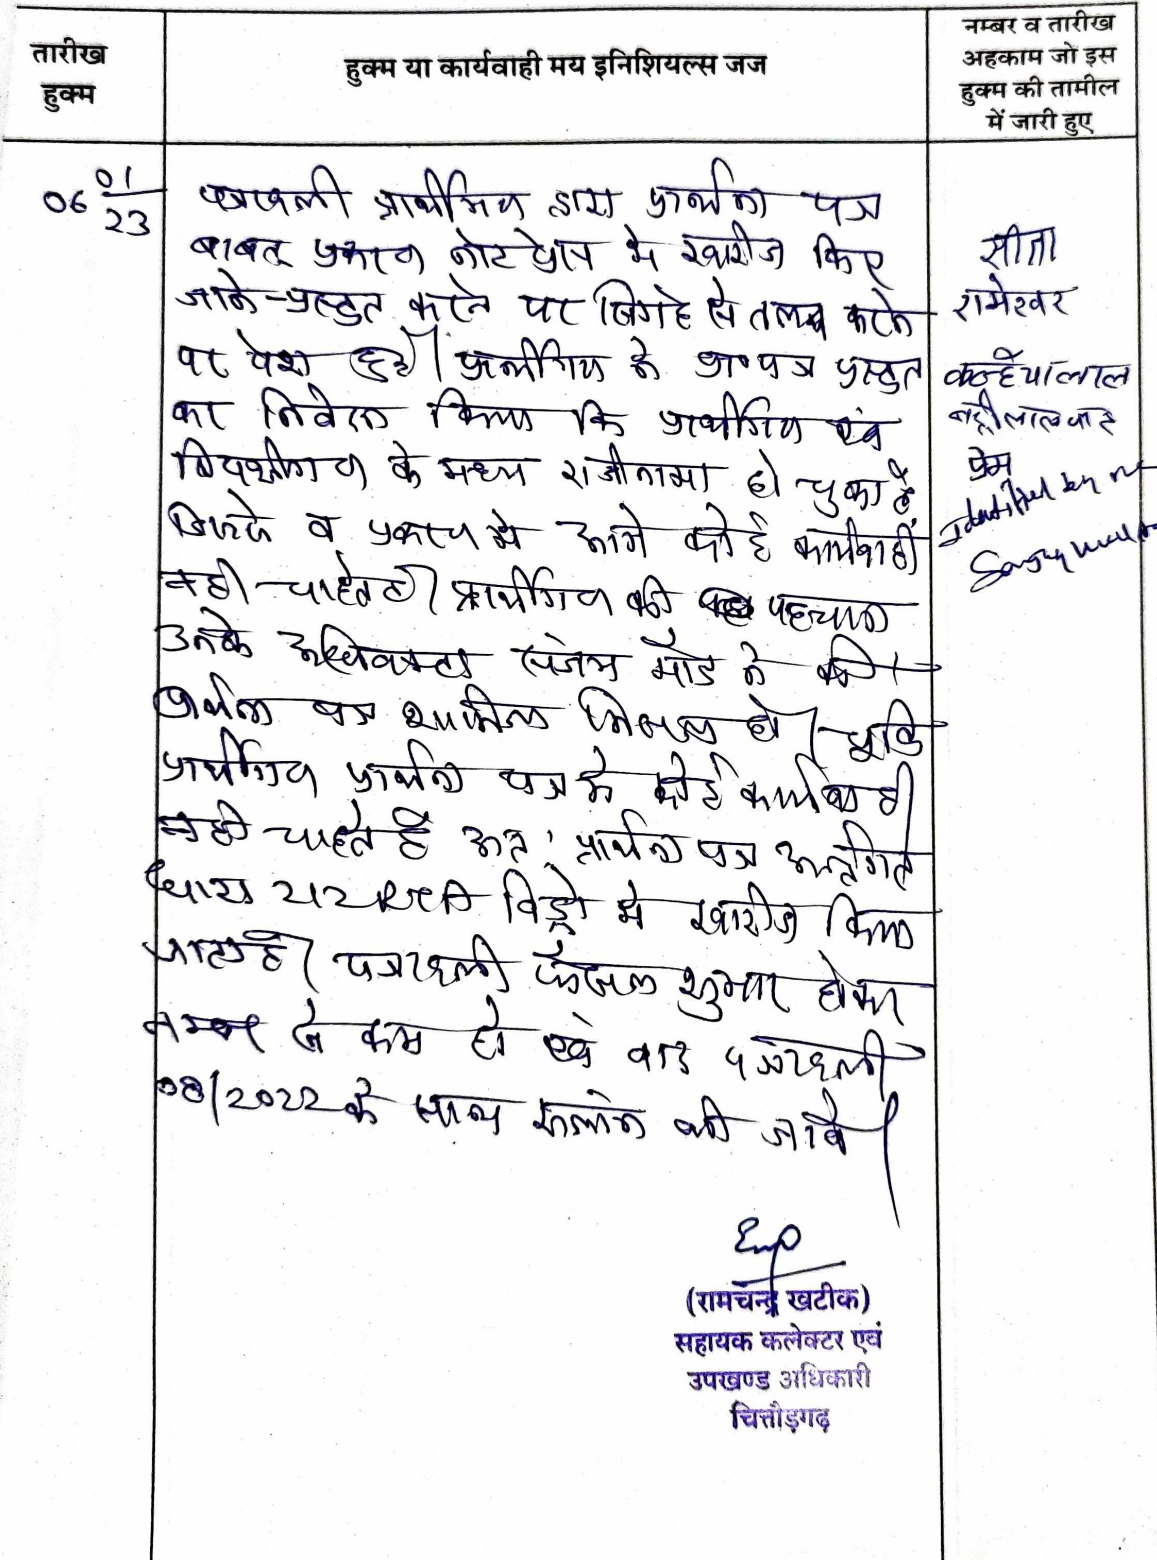 तारीख
हुक्म
हुक्म या कार्यवाही मय इनिशियल्स जज
नम्बर व तारीख
अहकाम जो इस
हुक्म की तामील
में जारी हुए
06 01/23
पत्रावली प्रार्थीगण द्वारा प्रार्थना पत्र
बाबत प्रकरण नोट प्रेस मे खारीज किए
जाने प्रस्तुत करने पर से तलब करने
पर पेश हुई। प्रार्थीगण ने प्रा० पत्र प्रस्तुत
कर निवेदन किया कि प्रार्थीगण एवं
विपक्षीगण के मध्य राजीनामा हो चुका है
व प्रकरण मे आगे कोई कार्यवाही
नही चाहते है। प्रार्थीगण की पहचान
उनके अधिवक्ता ने की।
प्रार्थना पत्र शामील मिसल हो। चूंकि
प्रार्थीगण प्रार्थना पत्र मे कोई कार्यवाही
नही चाहते है अतः प्रार्थना पत्र अन्तर्गत
धारा 212 विड्रो मे खारीज किया
जाता है। पत्रावली फैसल शुमार होकर
नम्बर से कम हो एवं वाद पत्रावली
08/2022 के साथ संलग्न की जावे।
सीता
रामेश्वर
कन्हैयालाल
प्रेम
Identified by me
(रामचन्द्र खटीक)
सहायक कलेक्टर एवं
उपखण्ड अधिकारी
चित्तौड़गढ़